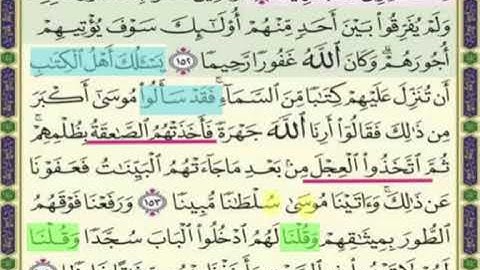 وَلَمْ يُفَرِّقُوا۟ بَيْنَ أَحَدٍ مِّنْهُمْ أُو۟لَٰٓئِكَ سَوْفَ يُؤْتِيهِمْ
أُجُورَهُمْ ۗ وَكَانَ ٱللَّهُ غَفُورًا رَّحِيمًا ١٥٢ يَسْـَٔلُكَ أَهْلُ ٱلْكِتَٰبِ
أَن تُنَزِّلَ عَلَيْهِمْ كِتَٰبًا مِّنَ ٱلسَّمَآءِ ۚ فَقَدْ سَأَلُوا۟ مُوسَىٰٓ أَكْبَرَ
مِن ذَٰلِكَ فَقَالُوٓا۟ أَرِنَا ٱللَّهَ جَهْرَةً فَأَخَذَتْهُمُ ٱلصَّٰعِقَةُ بِظُلْمِهِمْ ۚ
ثُمَّ ٱتَّخَذُوا۟ ٱلْعِجْلَ مِنۢ بَعْدِ مَا جَآءَتْهُمُ ٱلْبَيِّنَٰتُ فَعَفَوْنَا
عَن ذَٰلِكَ ۚ وَءَاتَيْنَا مُوسَىٰ سُلْطَٰنًا مُّبِينًا ١٥٣ وَرَفَعْنَا فَوْقَهُمُ
ٱلطُّورَ بِمِيثَٰقِهِمْ وَقُلْنَا لَهُمُ ٱدْخُلُوا۟ ٱلْبَابَ سُجَّدًا وَقُلْنَا